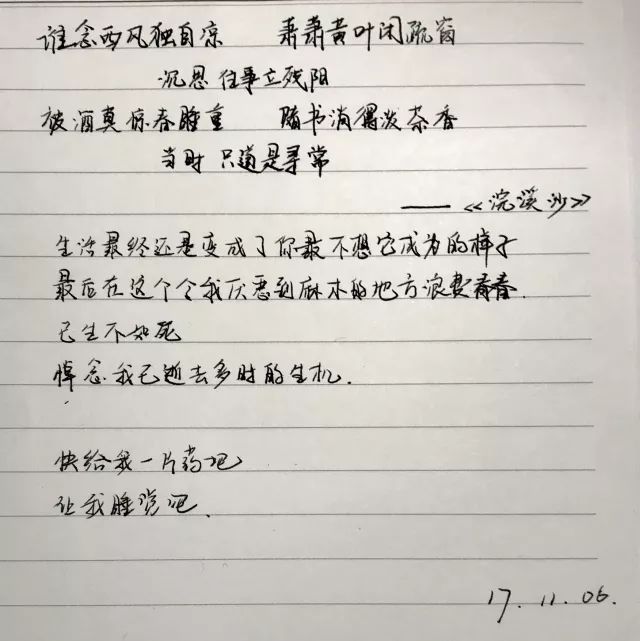 谁念西风独自凉 萧萧黄叶闭疏窗
沉思往事立残阳
被酒莫惊春睡重 赌书消得泼茶香
当时只道是寻常
——《浣溪沙》
生活最终还是变成了你最不想它成为的样子
最后在这个令我厌恶到麻木的地方浪费青春.
已生不如死
悼念我已逝去多时的生机.
快给我一片药吧
让我睡觉吧.
17.11.06.